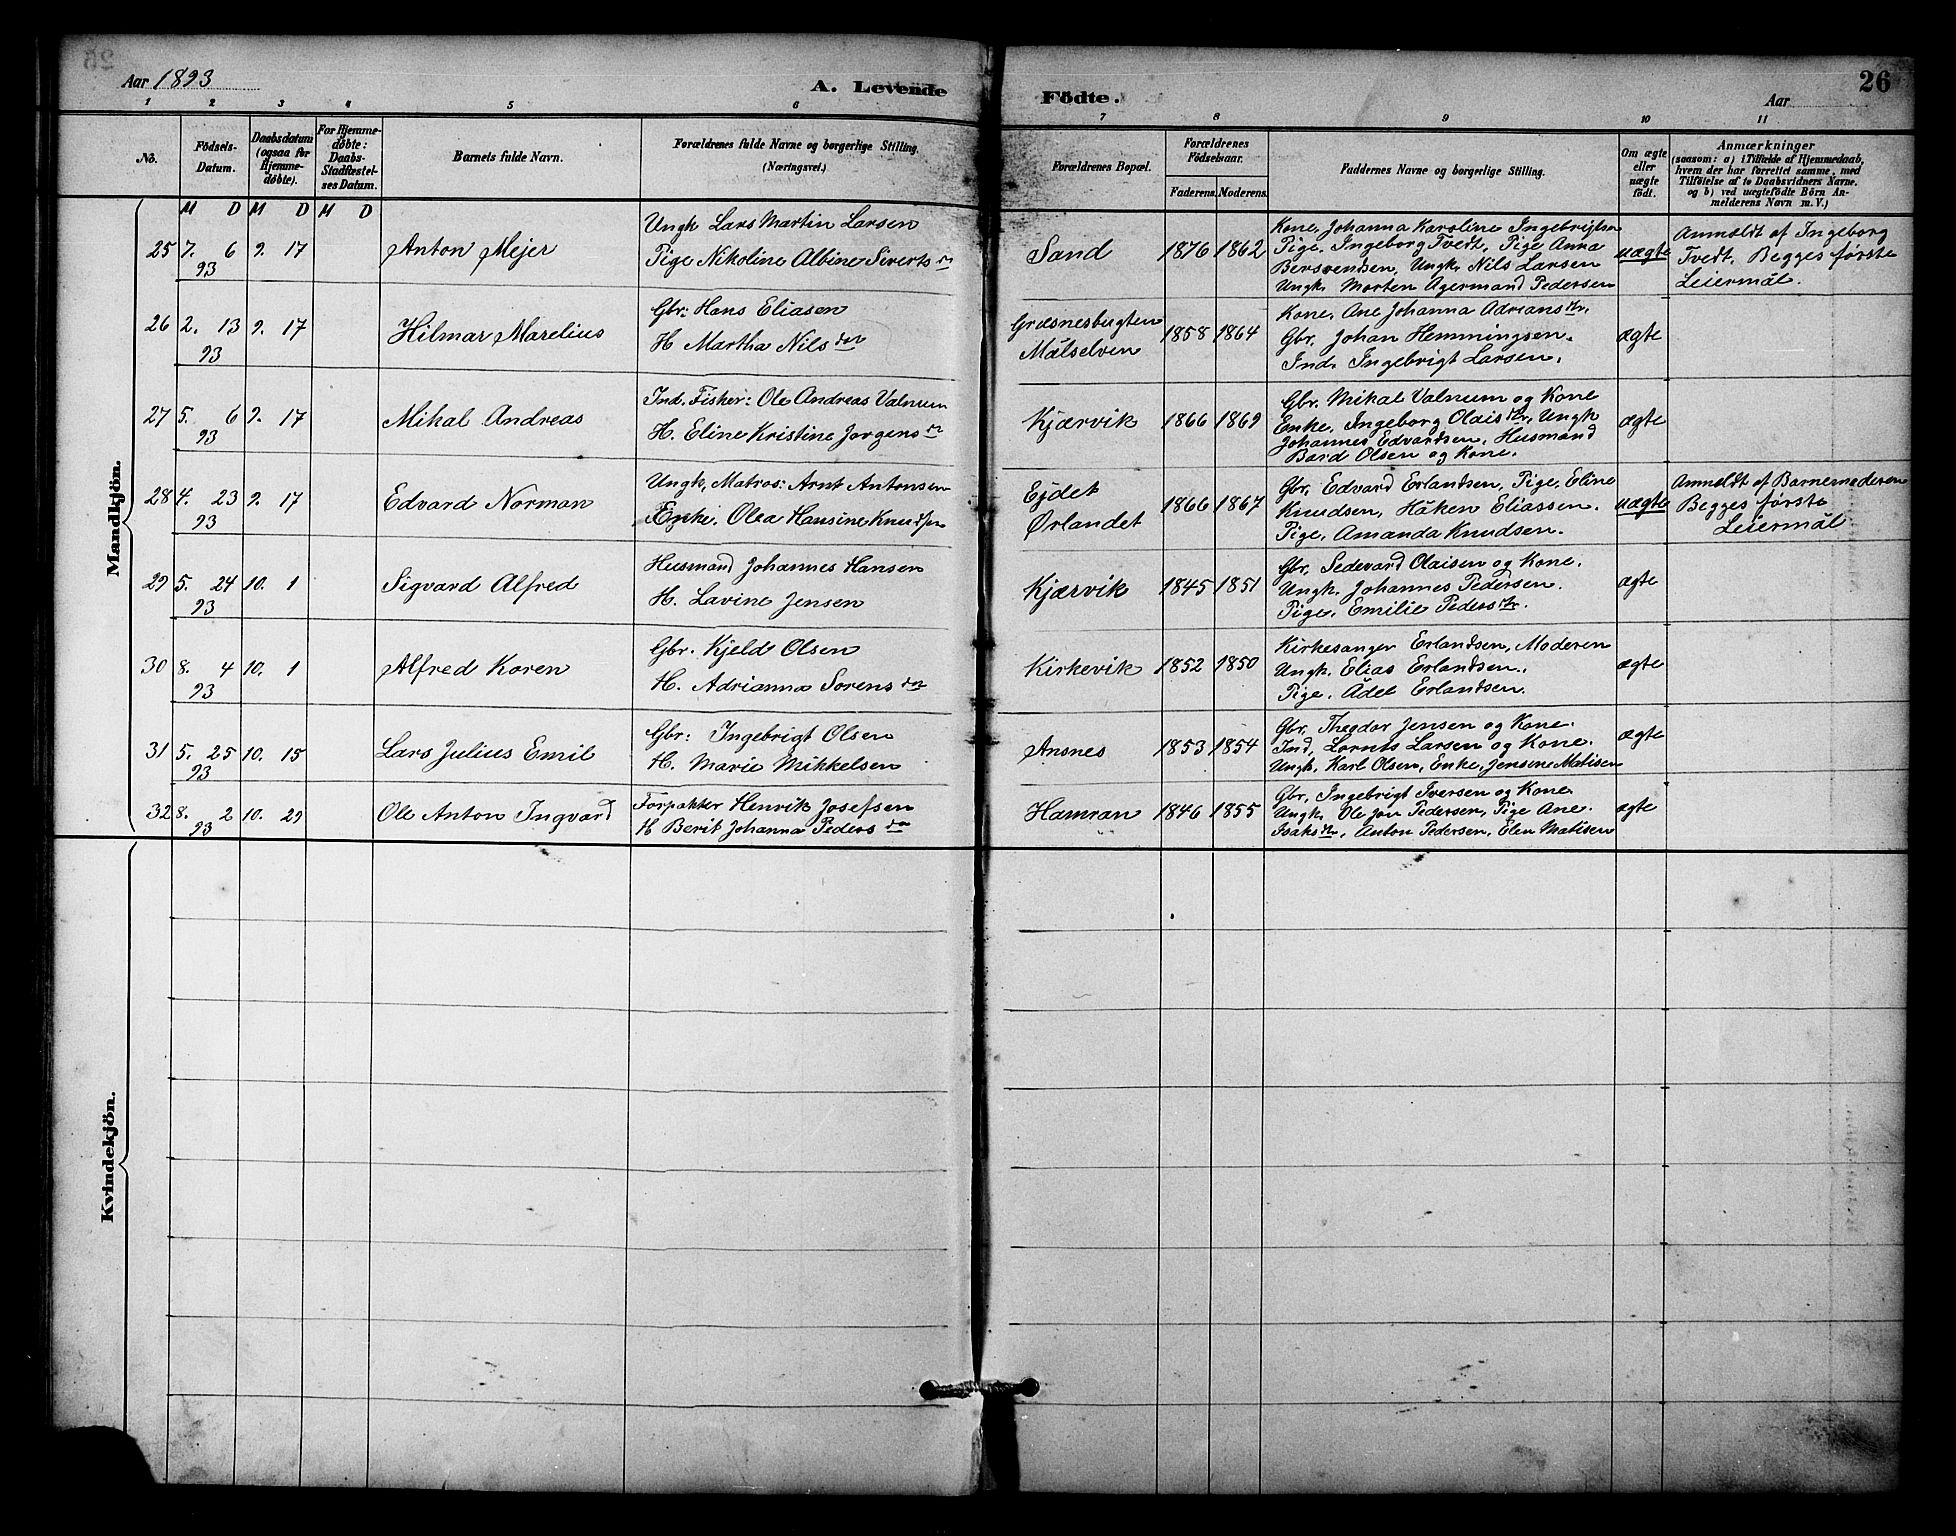 Aar 1893
A. Levende Födte.
Aar
26
1 2 3 4 5 6 7 8 9 10 11
No.
Födsels-Datum.
Daabsdatum (ogsaa for Hjemmedøbte).
For Hjemmedøbte: Daabs-Stadfæstelses Datum.
Barnets fulde Navn.
Forældrenes fulde Navne og borgerlige Stilling.
(Næringsvei.)
Forældrenes Bopæl.
Forældrenes Födselsaar.
Faderens. Moderens.
Faddernes Navne og borgerlige Stilling.
Om ægte eller uægte født.
Anmærkninger
(saasom: a) i Tilfælde af Hjemmedaab,
hvem der har forrettet samme, med
Tilföielse af to Daabsvidners Navne,
og b) ved uægtefödte Börn Anmelderens Navn m. V.)
M D M D M D
Mandkjön.
25 7. 6 93 9. 17
Anton Mejer
Ungk Lars Martin Larsen
Pige Nikoline Albine Siverts dr
Sand
1876 1862
Kone, Johanna Karoline Ingebrigtsen
Pige, Ingeborg Tvedt, Pige Anna
Bersvendsen, Ungk. Nils Larsen
Ungk. Morten Agermand Pedersen
uægte
Anmeldt af Ingeborg
Tvedt. Begges første
Leiermål.
26 2. 13 93 9. 17
Hilmar Marelius
Gbr: Hans Eliasen
H Martha Nils dtr
Græsnesbugten
Målselven
1858 1864
Kone, Ane Johanna Adrians dtr.
Gbr. Johan Hemmingsen.
Ind. Ingebrigt Larsen.
ægte
27 5. 6 93 9. 17
Mikal Andreas
Ind. Fisker: Ole Andreas Valnum
H. Eline Kristine Jørgens dr
Kjærvik
1866 1869
Gbr. Mikal Valnum og Kone
Enke, Ingeborg Olais dtr, Ungk
Johannes Edvardsen, Husmand
Bard Olsen og Kone.
ægte
28 4. 23 93 9. 17
Edvard Norman
Ungk, Matros: Arnt Antonsen
Enke, Olea Hansine Knudsen
Ejdet
Ørlandet
1866 1867
Gbr. Edvard Erlandsen, Pige, Eline
Knudsen, Håken Eliassen.
Pige, Amanda Knudsen.
uægte
Anmeldt af Barnemoderen
Begges første
Leiermål
29 5. 24 93 10. 1
Sigvard Alfred
Husmand Johannes Hansen
H. Lavine Jensen
Kjærvik
1845 1851
Gbr, Sedevard Olaisen og Kone.
Ungk. Johannes Pedersen.
Pige, Emilie Peders dtr.
ægte
30 8. 4 93 10. 1
Alfred Koren
Gbr. Kjeld Olsen
H. Adrianna Sørens dtr
Kirkevik
1852 1850
Kirkesanger Erlandsen, Moderen
Ungk, Elias Erlandsen,
Pige, Ådel Erlandsen.
ægte
31 5. 25 93 10. 15
Lars Julius Emil
Gbr: Ingebrigt Olsen
H. Marie Mikkelsen
Ansnes
1853 1854
Gbr, Theodor Jensen og Kone.
Ind, Lornts Larsen og Kone.
Ungk, Karl Olsen, Enke, Jensine Matisen
ægte
32 8. 2 93 10. 29
Ole Anton Ingvard
Forpakter Henrik Josefsen
H Berit Johanna Peders dtr
Hamran
1846 1855
Gbr, Ingebrigt Iversen og Kone
Ungk, Ole Jon Pedersen, Pige Ane
Isaks dtr, Anton Pedersen, Elen Matisen
ægte
Kvindekjön.